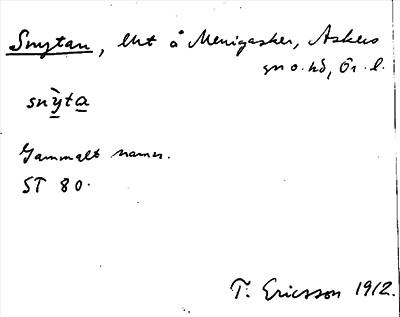 Snytan, lht å Menigasker, Askers
sn o. hd, Ör. l.
snỳta
Gammalt namn.
ST 80.
T. Ericsson 1912.